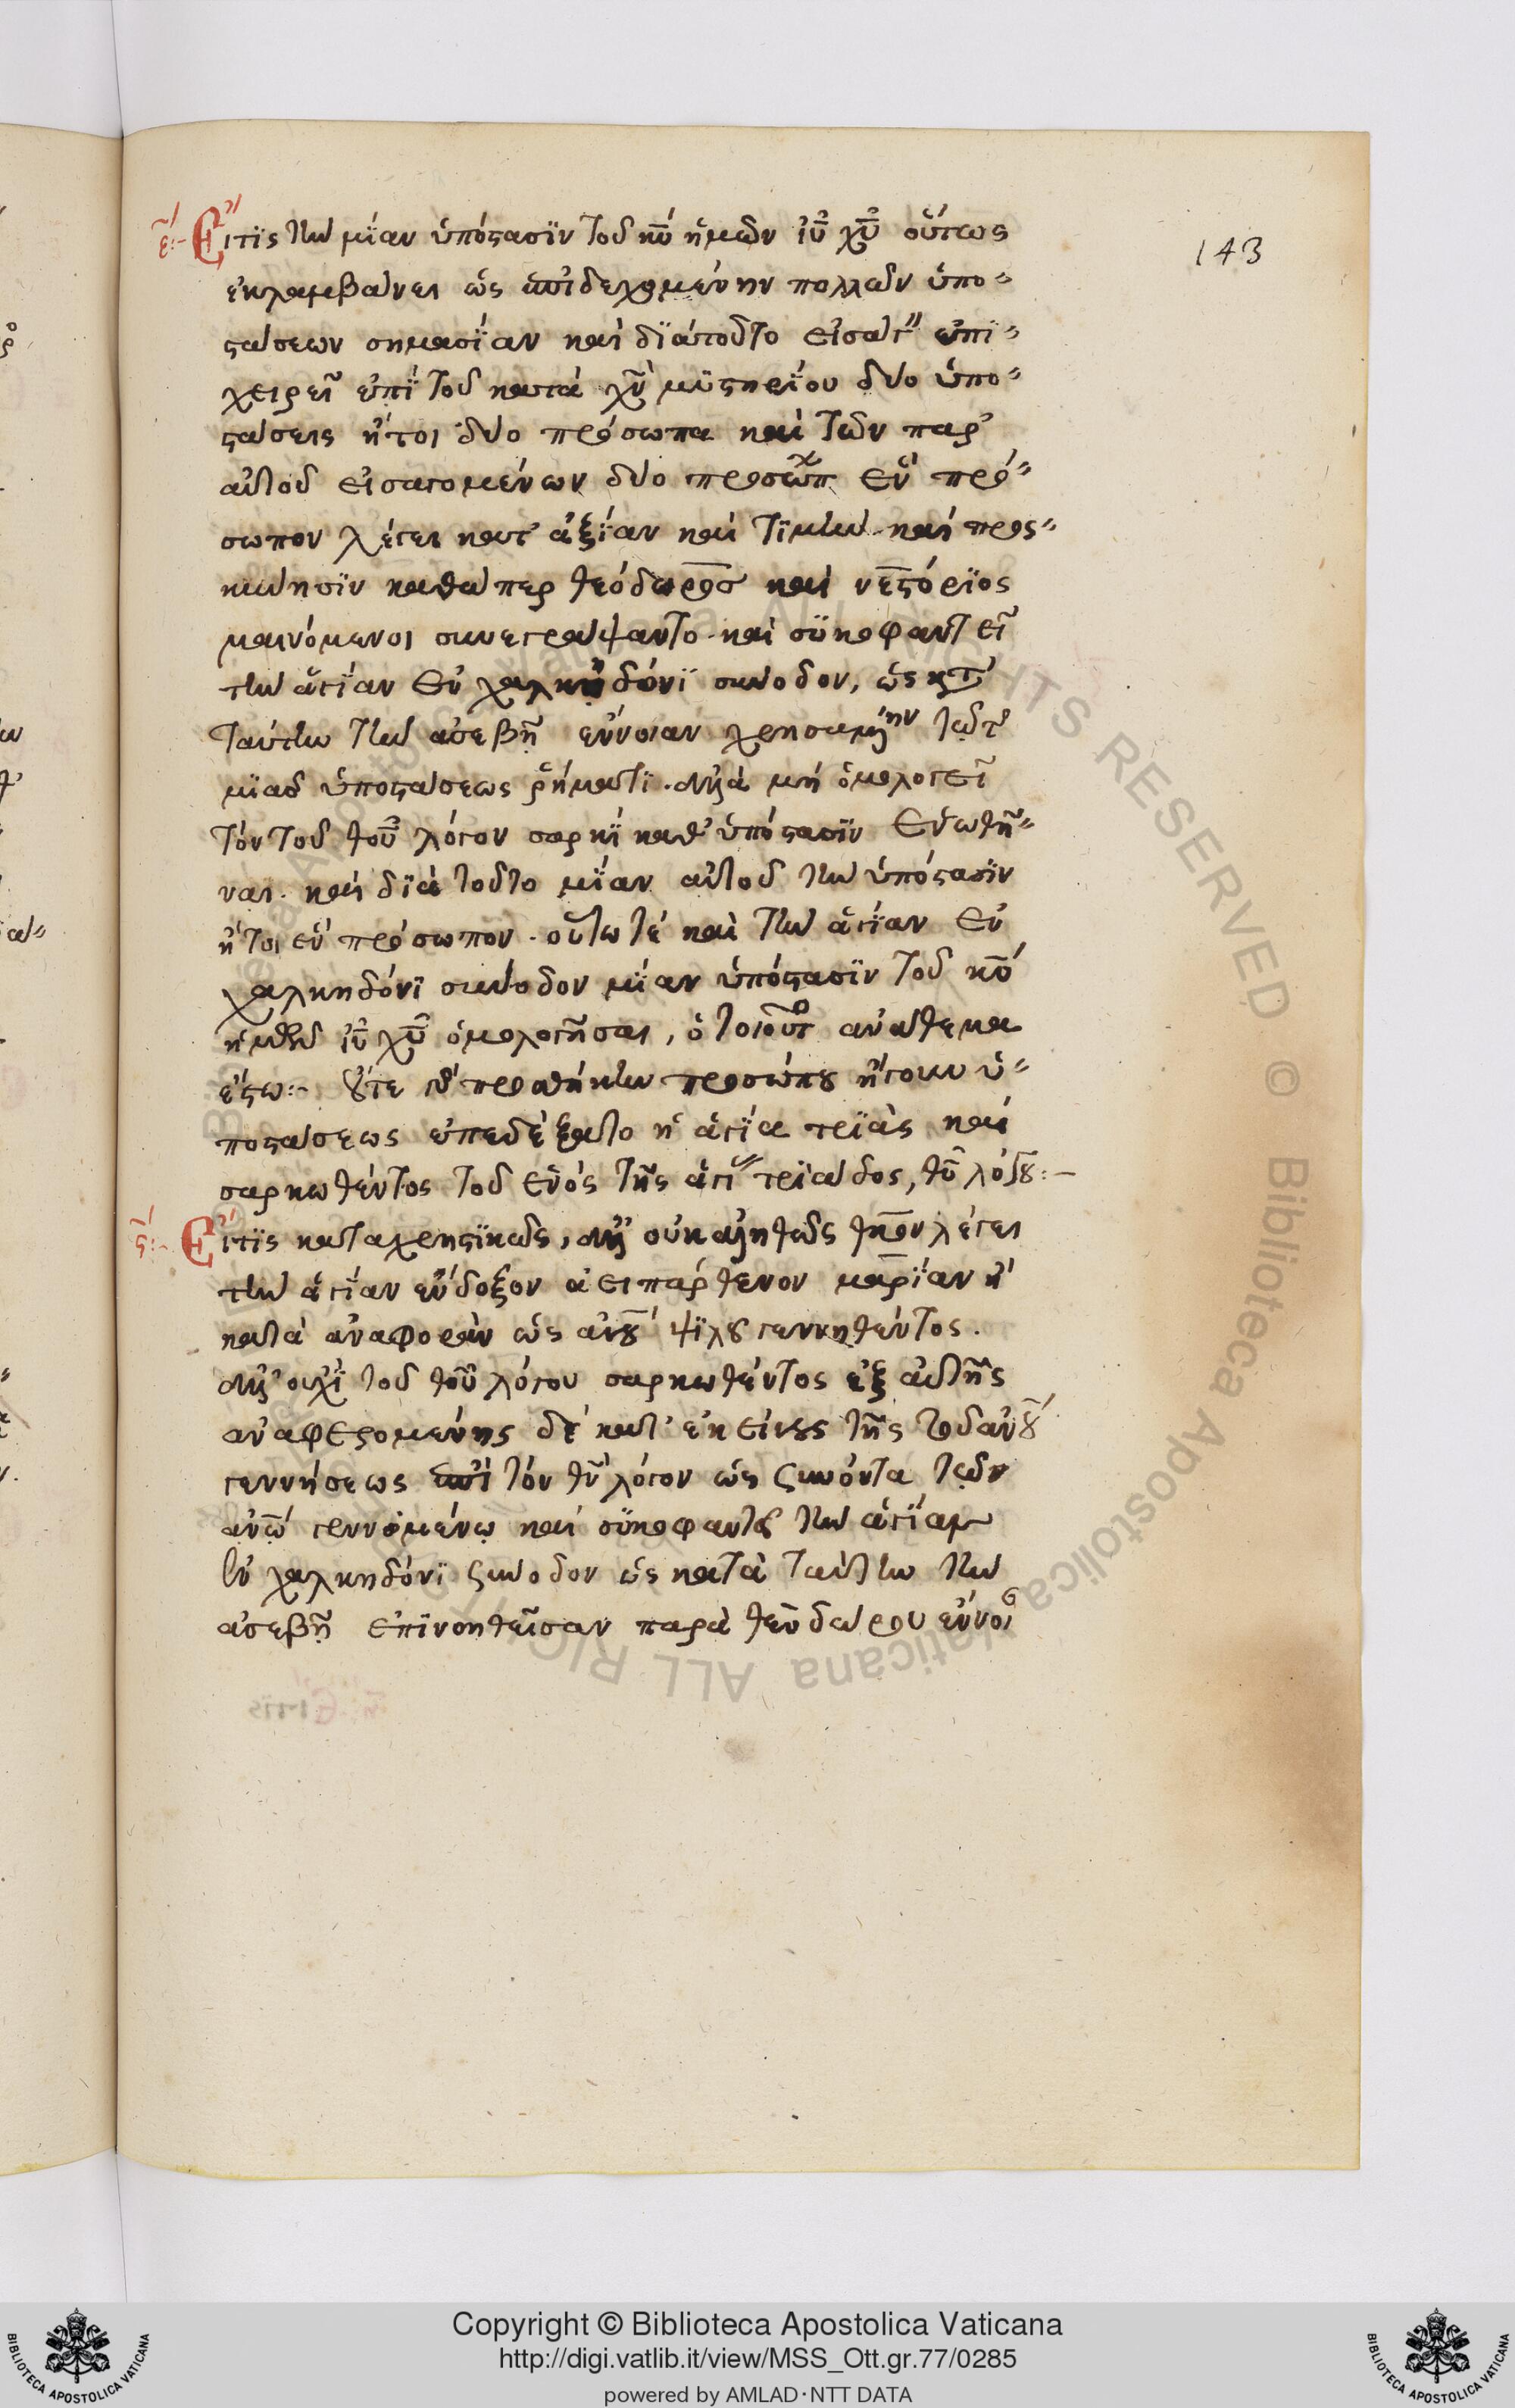 ε΄:- Εἴ τις τὴν μίαν ὑπόστασιν τοῦ κῦ ἡμῶν ἰῦ χῦ οὕτως
ἐκλαμβάνει ὡς ἐπιδεχομένην πολλῶν ὑπο-
στάσεων σημασίαν καὶ διὰ τοῦτο εἰσάγ" ἐπι-
χειρεῖ ἐπὶ τοῦ κατὰ χν μυστηρίου δύο ὑπο-
στάσεις ἤτοι δύο πρόσωπα καὶ τῶν παρ'
αὐτοῦ εἰσαγομένων δύο προσώπ ἓν πρό-
σωπον λέγει κατ' ἀξίαν καὶ τιμὴν καὶ προς-
κύνησιν καθάπερ θεόδωρος καὶ νεστόριος
μαινόμενοι συνεγράψαντο καὶ συκοφαντεῖ
τὴν ἁγίαν ἐν χαλκηδόνι σύνοδον, ὡς κτ'
ταύτην τὴν ἀσεβῆ ἔννοιαν χρησαμένην τῶ τ
μιᾶς ὑποστάσεως ῥήματι. ἀλλὰ μὴ ὁμολογεῖ
τὸν τοῦ θοῦ λόγον σαρκὶ καθ' ὑπόστασιν ἑνωθῆ-
ναι. καὶ διὰ τοῦτο μίαν αὐτοῦ τὴν ὑπόστασιν
ἤτοι ἓν πρόσωπον. οὕτω τε καὶ τὴν ἁγίαν ἐν
χαλκηδόνι σύνοδον μίαν ὑπόστασιν τοῦ κῦ
ἡμῶν ἰῦ χῦ ὁμολογῆσαι, ὁ τοιοῦτ ἀνάθεμα
ἔστω:- οὔτε γὰρ προσθήκην προσώπου ἤγουν ὑ-
ποστάσεως ἐπεδέξατο ἡ ἁγία τριὰς καὶ
σαρκωθέντος τοῦ ἑνὸς τῆς ἁγί" τριάδος, θῦ λόγου:-
ς΄:- Εἴ τις καταχρηστικῶς, ἀλλ' οὐκ ἀληθῶς θκον λέγει
τὴν ἁγίαν ἔνδοξον ἀειπάρθενον μαρίαν ἢ
κατὰ ἀναφορὰν ὡς ἀνου ψιλοῦ γεννηθέντος.
ἀλλ' οὐχὶ τοῦ θοῦ λόγου σαρκωθέντος ἐξ αὐτῆς
ἀναφερομένης δὲ κατ' ἐκείνους τῆς τοῦ ἀνου
γεννήσεως ἐπὶ τὸν θν λόγον ὡς συνόντα τῶ
ἀνω γεννομένω καὶ συκοφαντεῖ τὴν ἁγίαν
ἐν χαλκηδόνι σύνοδον ὡς κατὰ ταύτην τὴν
ἀσεβῆ ἐπινοηθεῖσαν παρὰ θεοδώρου ἔννοι
143
Copyright © Biblioteca Apostolica Vaticana
http://digi.vatlib.it/view/MSS_Ott.gr.77/0285
powered by AMLAD·NTT DATA